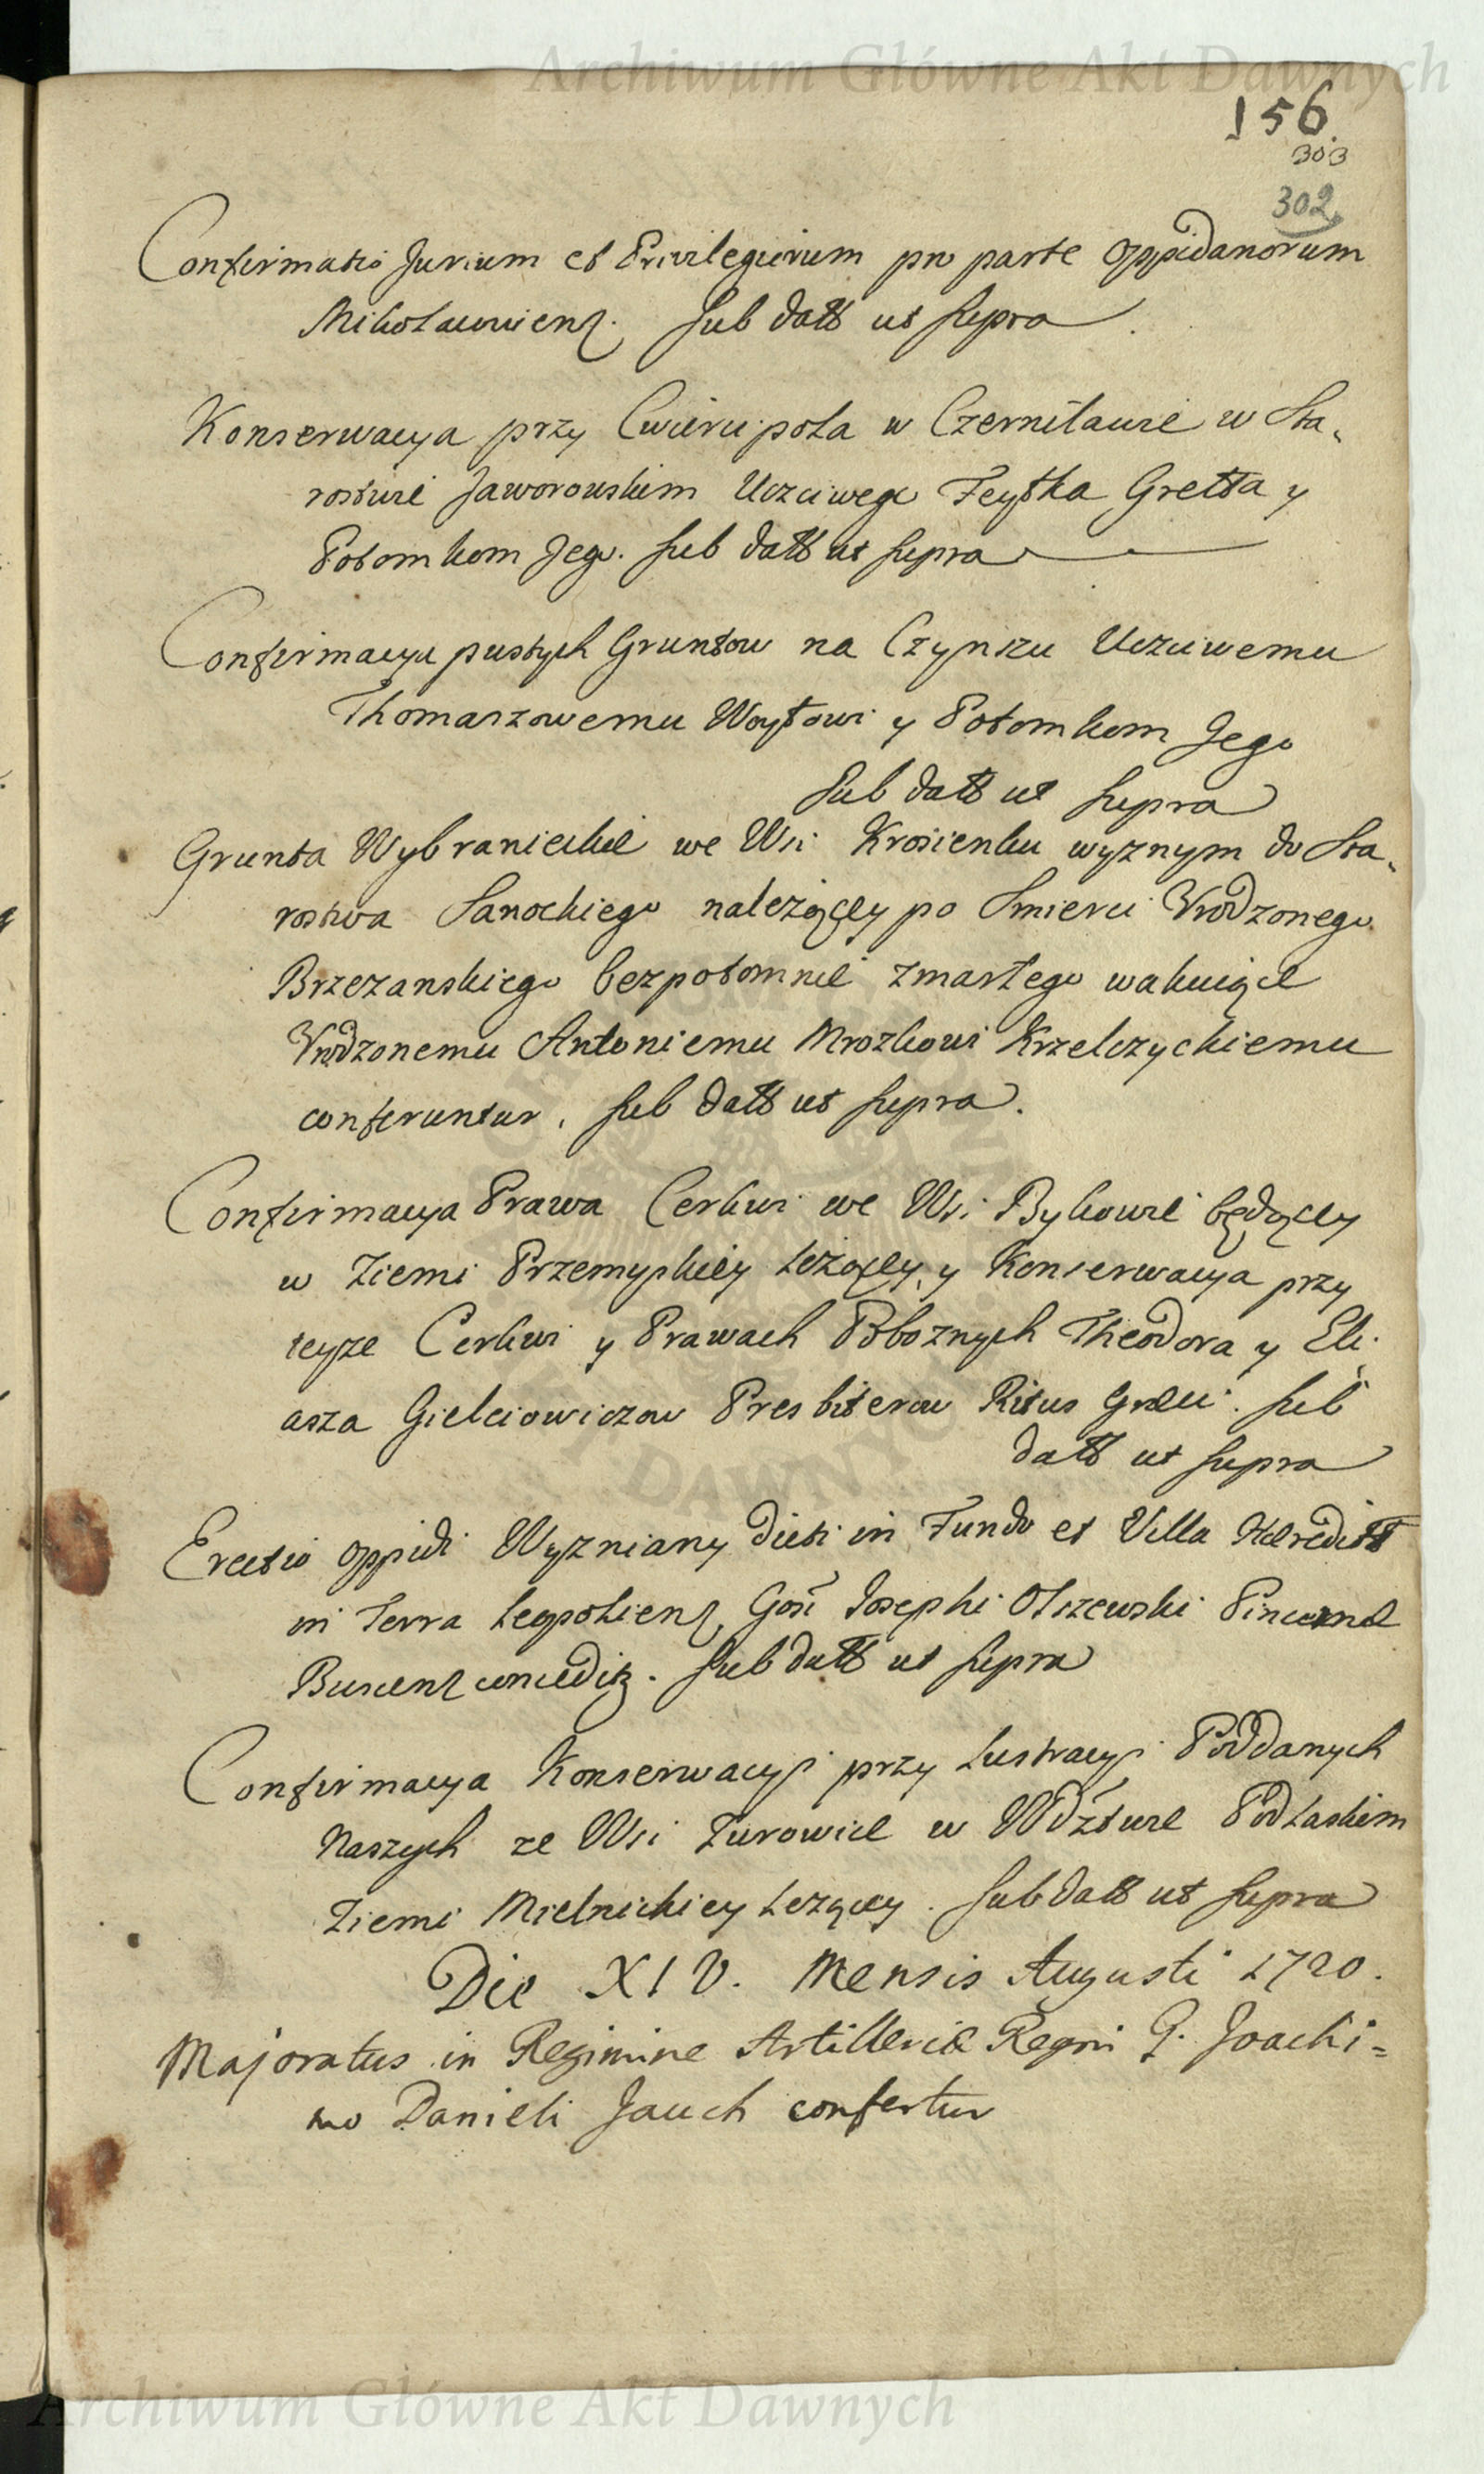 Archiwum Główne Akt Dawnych
156.
303
302
Confirmatio Jurium et Privilegiorum pro parte Oppidanorum
Mikołaiowiens. sub datt ut supra
Konserwacya przy Cwierci pola w Czerniławie w Sta,
rostwie Jaworowskim Uczciwego Feytka Gretta y
Potomkom Jego. sub datt ut supra
Confirmacya pustych Gruntow na Czynszu Uczciwemu
Thomaszowemu Woytowi y Potomkom Jego
sub datt ut supra
Grunta Wybranieckie we Wsi Krosienku wyznym do Sta,
rostwa Sanockiego należącey po Smierci Vrodzonego
Brzezanskiego bezpotomnie zmarłego wakuiące
Vrodzonemu Antoniemu Mrozkowi Krzelczyckiemu
conferuntur, sub datt ut supra.
Confirmacya Prawa Cerkwi we Wsi Bykowie będącey
w Ziemi Przemyskiey leżącey, y Konserwacya przy
teyze Cerkwi y Prawach Pobożnych Theodora y Eli,
asza Gielciowiczow Presbiterow Ritus Græci. sub
datt ut supra
Erectio Oppidi Wyzniany dicti in Fundo et Villa Hæreditt
in Terra Leopoliens Gosi Josephi Olszewski Pincernæ
Buscens conceditz. sub datt ut supra
Confirmacya Konserwacyi przy Lustracyi Poddanych
Naszych ze Wsi Zurowice w Wdztwie Podlaskim
Ziemi Mielnickiey Lezącey. sub datt ut supra
Die XIV. Mensis Augusti 1720.
Majoratus in Regimine Artilleriæ Regni G. Joachi=
mo Danieli Jauch confertur
Archiwum Główne Akt Dawnych